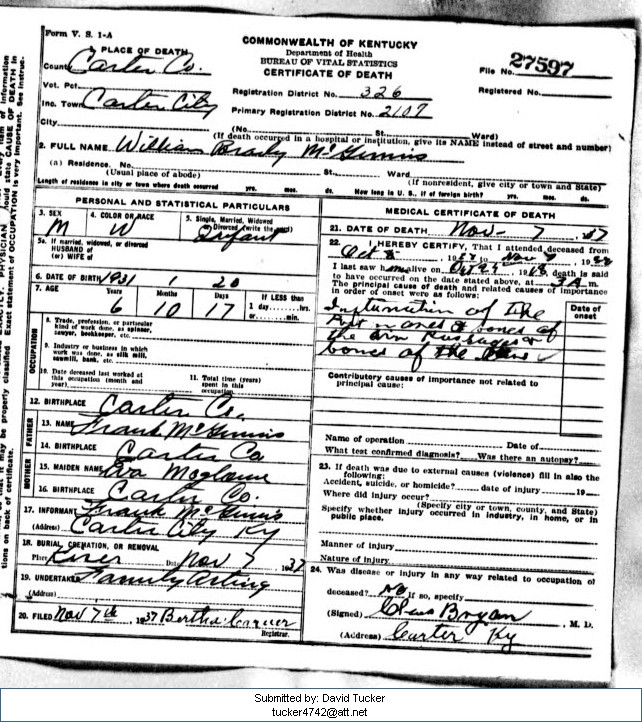 Form V. S. 1-A
COMMONWEALTH OF KENTUCKY
Department of Health
BUREAU OF VITAL STATISTICS
CERTIFICATE OF DEATH
1. PLACE OF DEATH
County Carter Co.
Vot. Pct.
Inc. Town Carter City
City
File No. 27597
Registered No.
Registration District No. 326
Primary Registration District No. 2107
(No. St. Ward)
(If death occurred in a hospital or institution, give its NAME instead of street and number)
2. FULL NAME William Brady McGinnis
(a) Residence. No. St., Ward
(Usual place of abode) (If nonresident, give city or town and State)
Length of residence in city or town where death occurred yrs. mos. ds. How long in U. S., if of foreign birth? yrs. mos. ds.
PERSONAL AND STATISTICAL PARTICULARS
3. SEX 4. COLOR OR RACE 5. Single, Married, Widowed
or Divorced (write the word)
M W Infant
5a. If married, widowed, or divorced
HUSBAND of
(or) WIFE of
6. DATE OF BIRTH 1931 1 20
7. AGE Years Months Days If LESS than
6 10 17 1 day hrs.
or min.
OCCUPATION
8. Trade, profession, or particular
kind of work done, as spinner,
sawyer, bookkeeper, etc.
9. Industry or business in which
work was done, as silk mill,
sawmill, bank, etc.
10. Date deceased last worked at
this occupation (month and
year)
11. Total time (years)
spent in this
occupation
12. BIRTHPLACE Carter Co.
FATHER
13. NAME Frank McGinnis
14. BIRTHPLACE Carter Co
MOTHER
15. MAIDEN NAME Eva
16. BIRTHPLACE Carter Co.
17. INFORMANT Frank McGinnis
(Address) Carter City Ky
18. BURIAL, CREMATION, OR REMOVAL
Place Kiser Date Nov 7 1937
19. UNDERTAKER Family
(Address)
20. FILED Nov 7th 1937 Bertha
Registrar.
MEDICAL CERTIFICATE OF DEATH
21. DATE OF DEATH Nov- 7 37
22. I HEREBY CERTIFY, That I attended deceased from
Oct to Nov
I last saw him alive on Oct death is said
to have occurred on the date stated above, at 3 A m.
The principal cause of death and related causes of importance
in order of onset were as follows:
Date of
onset
of the
bones of
the
bones of the
Contributory causes of importance not related to
principal cause:
Name of operation Date of
What test confirmed diagnosis? Was there an autopsy?
23. If death was due to external causes (violence) fill in also the
following:
Accident, suicide, or homicide? date of injury 19
Where did injury occur?
(Specify city or town, county, and State)
Specify whether injury occurred in industry, in home, or in
public place.
Manner of injury
Nature of injury
24. Was disease or injury in any way related to occupation of
deceased? No If so, specify
(Signed) Bryan, M. D.
(Address) Carter Ky
Submitted by: David Tucker
tucker4742@att.net